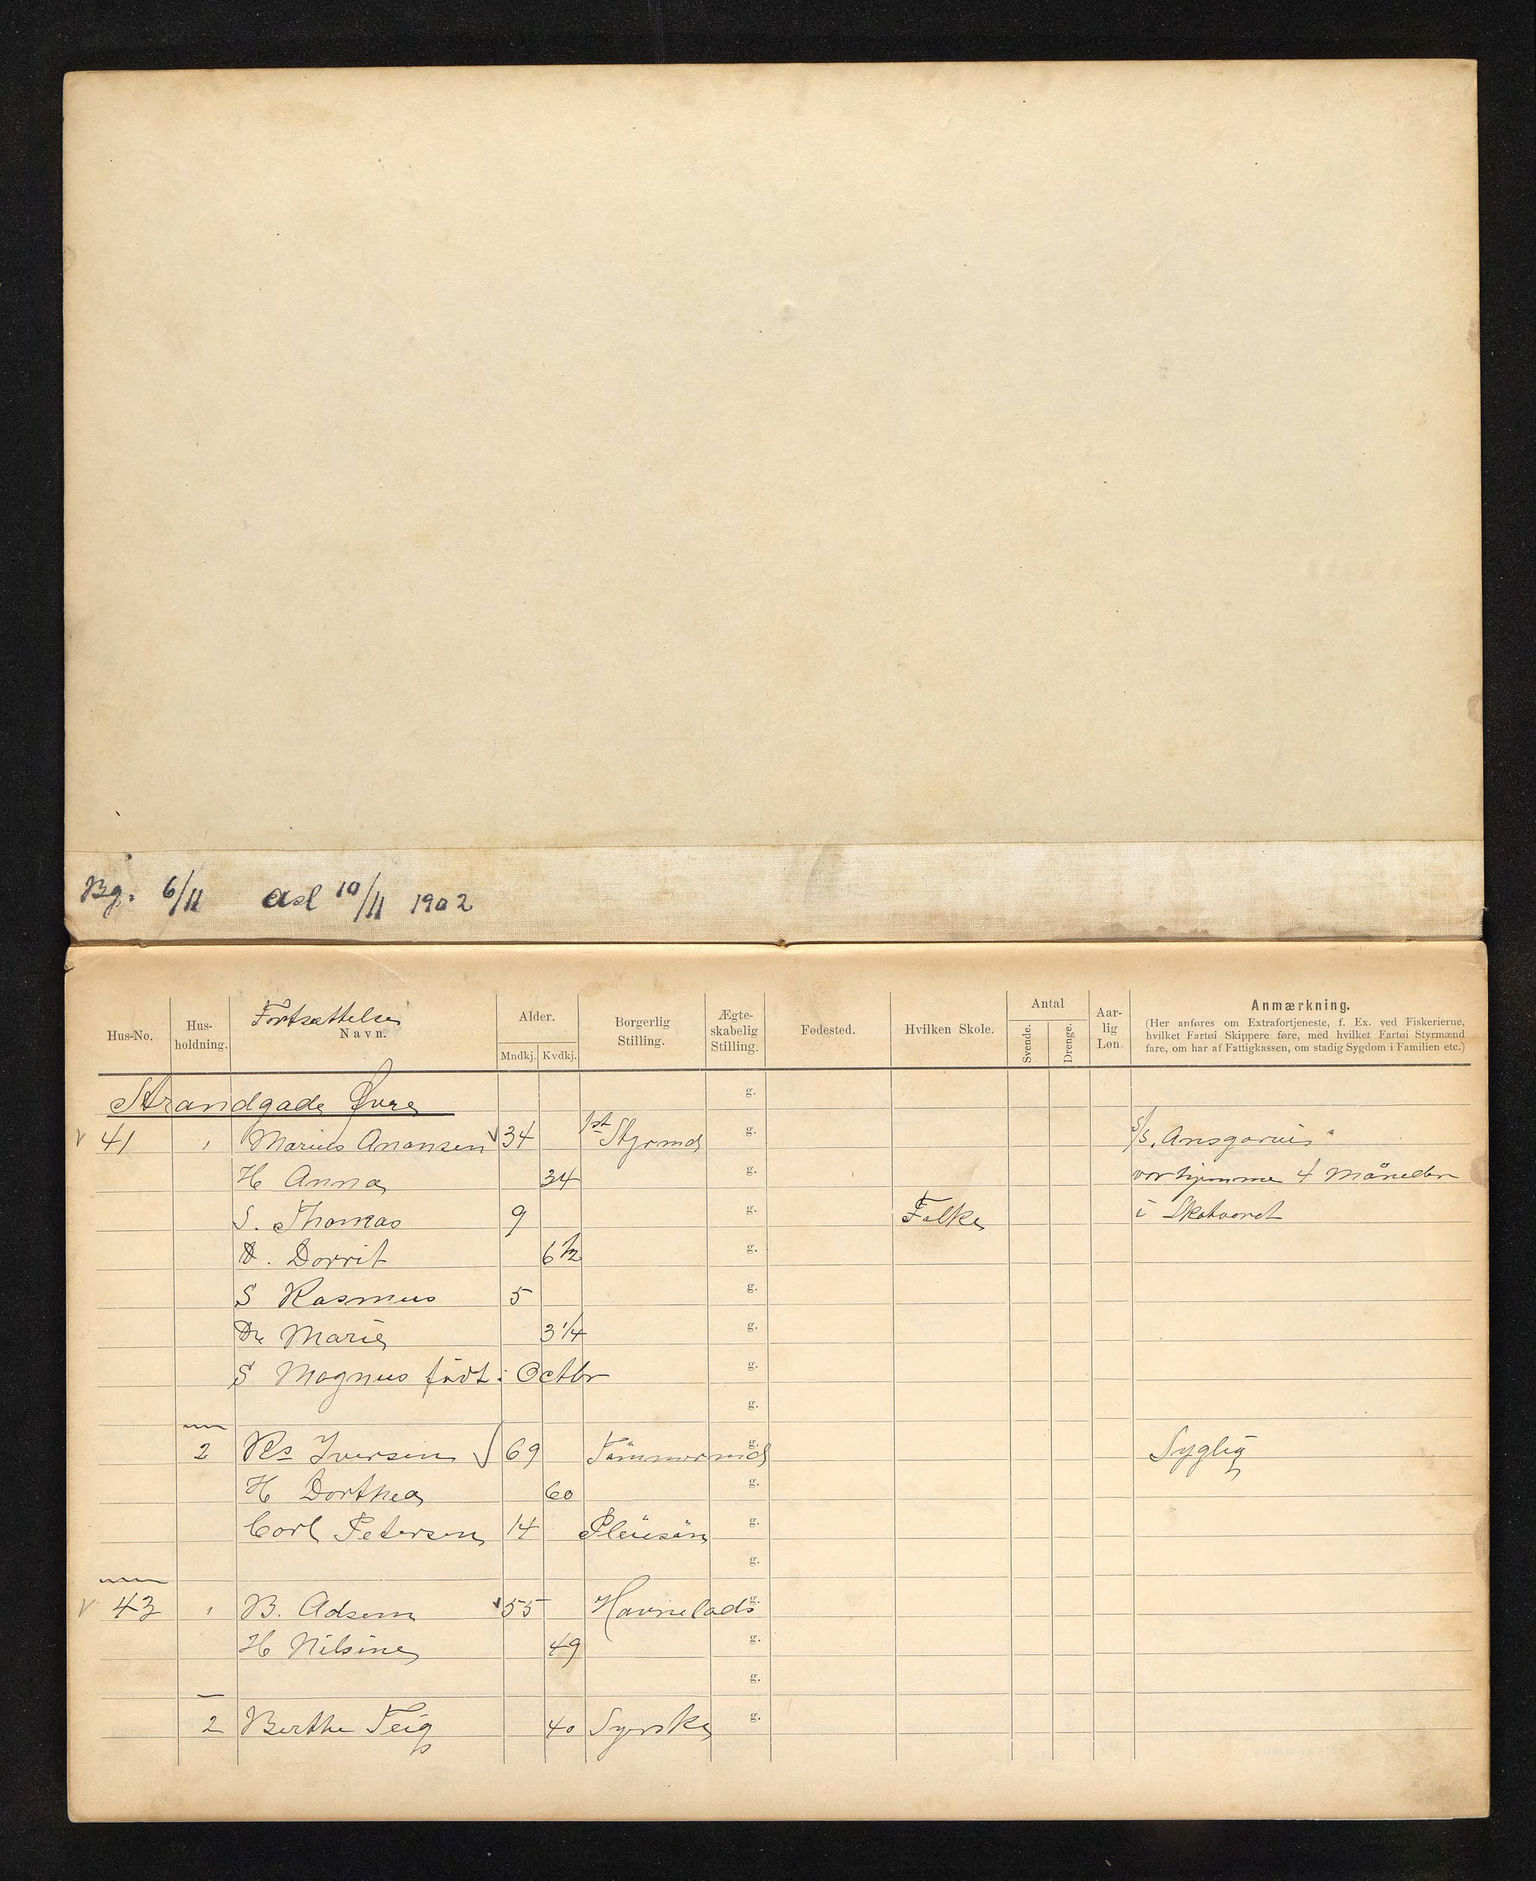 Bg. 6/11 asl 10/11 1902
Hus-No. Hus-holdning. Fortsættelse Navn. Alder. Mndkj. Kvdkj. Borgerlig Stilling. Ægte-skabelig Stilling. Fødested. Hvilken Skole. Antal Svende. Drenge. Aar-lig Løn. Anmærkning.
(Her anføres om Extrafortjeneste, f. Ex. ved Fiskerierne,
hvilket Fartøi Skippere føre, med hvilket Fartøi Styrmænd
fare, om har af Fattigkassen, om stadig Sygdom i Familien etc.)
Strandgade Øvre g.
v 41 " Marius Anansen v 34 1st Styrmd g. S/S. "Ansgarius"
H Anna 34 g. var hjemme 4 Måneder
S. Thomas 9 g. Folke i
D. Dorrit 6 1/2 g.
S Rasmus 5 g.
Dr Marie 3 1/4 g.
S Magnus født i Octbr g.
g.
2 Rs Iversen 69 Tömmermd g. Syglig
H Dorthea 60 g.
Carl Petersen 14 Pleiesön g.
g.
v 43 " B. Adsem v 55 Havnelods g.
H Nilsine 49 g.
g.
2 Berthe Teig 40 Syerske g.